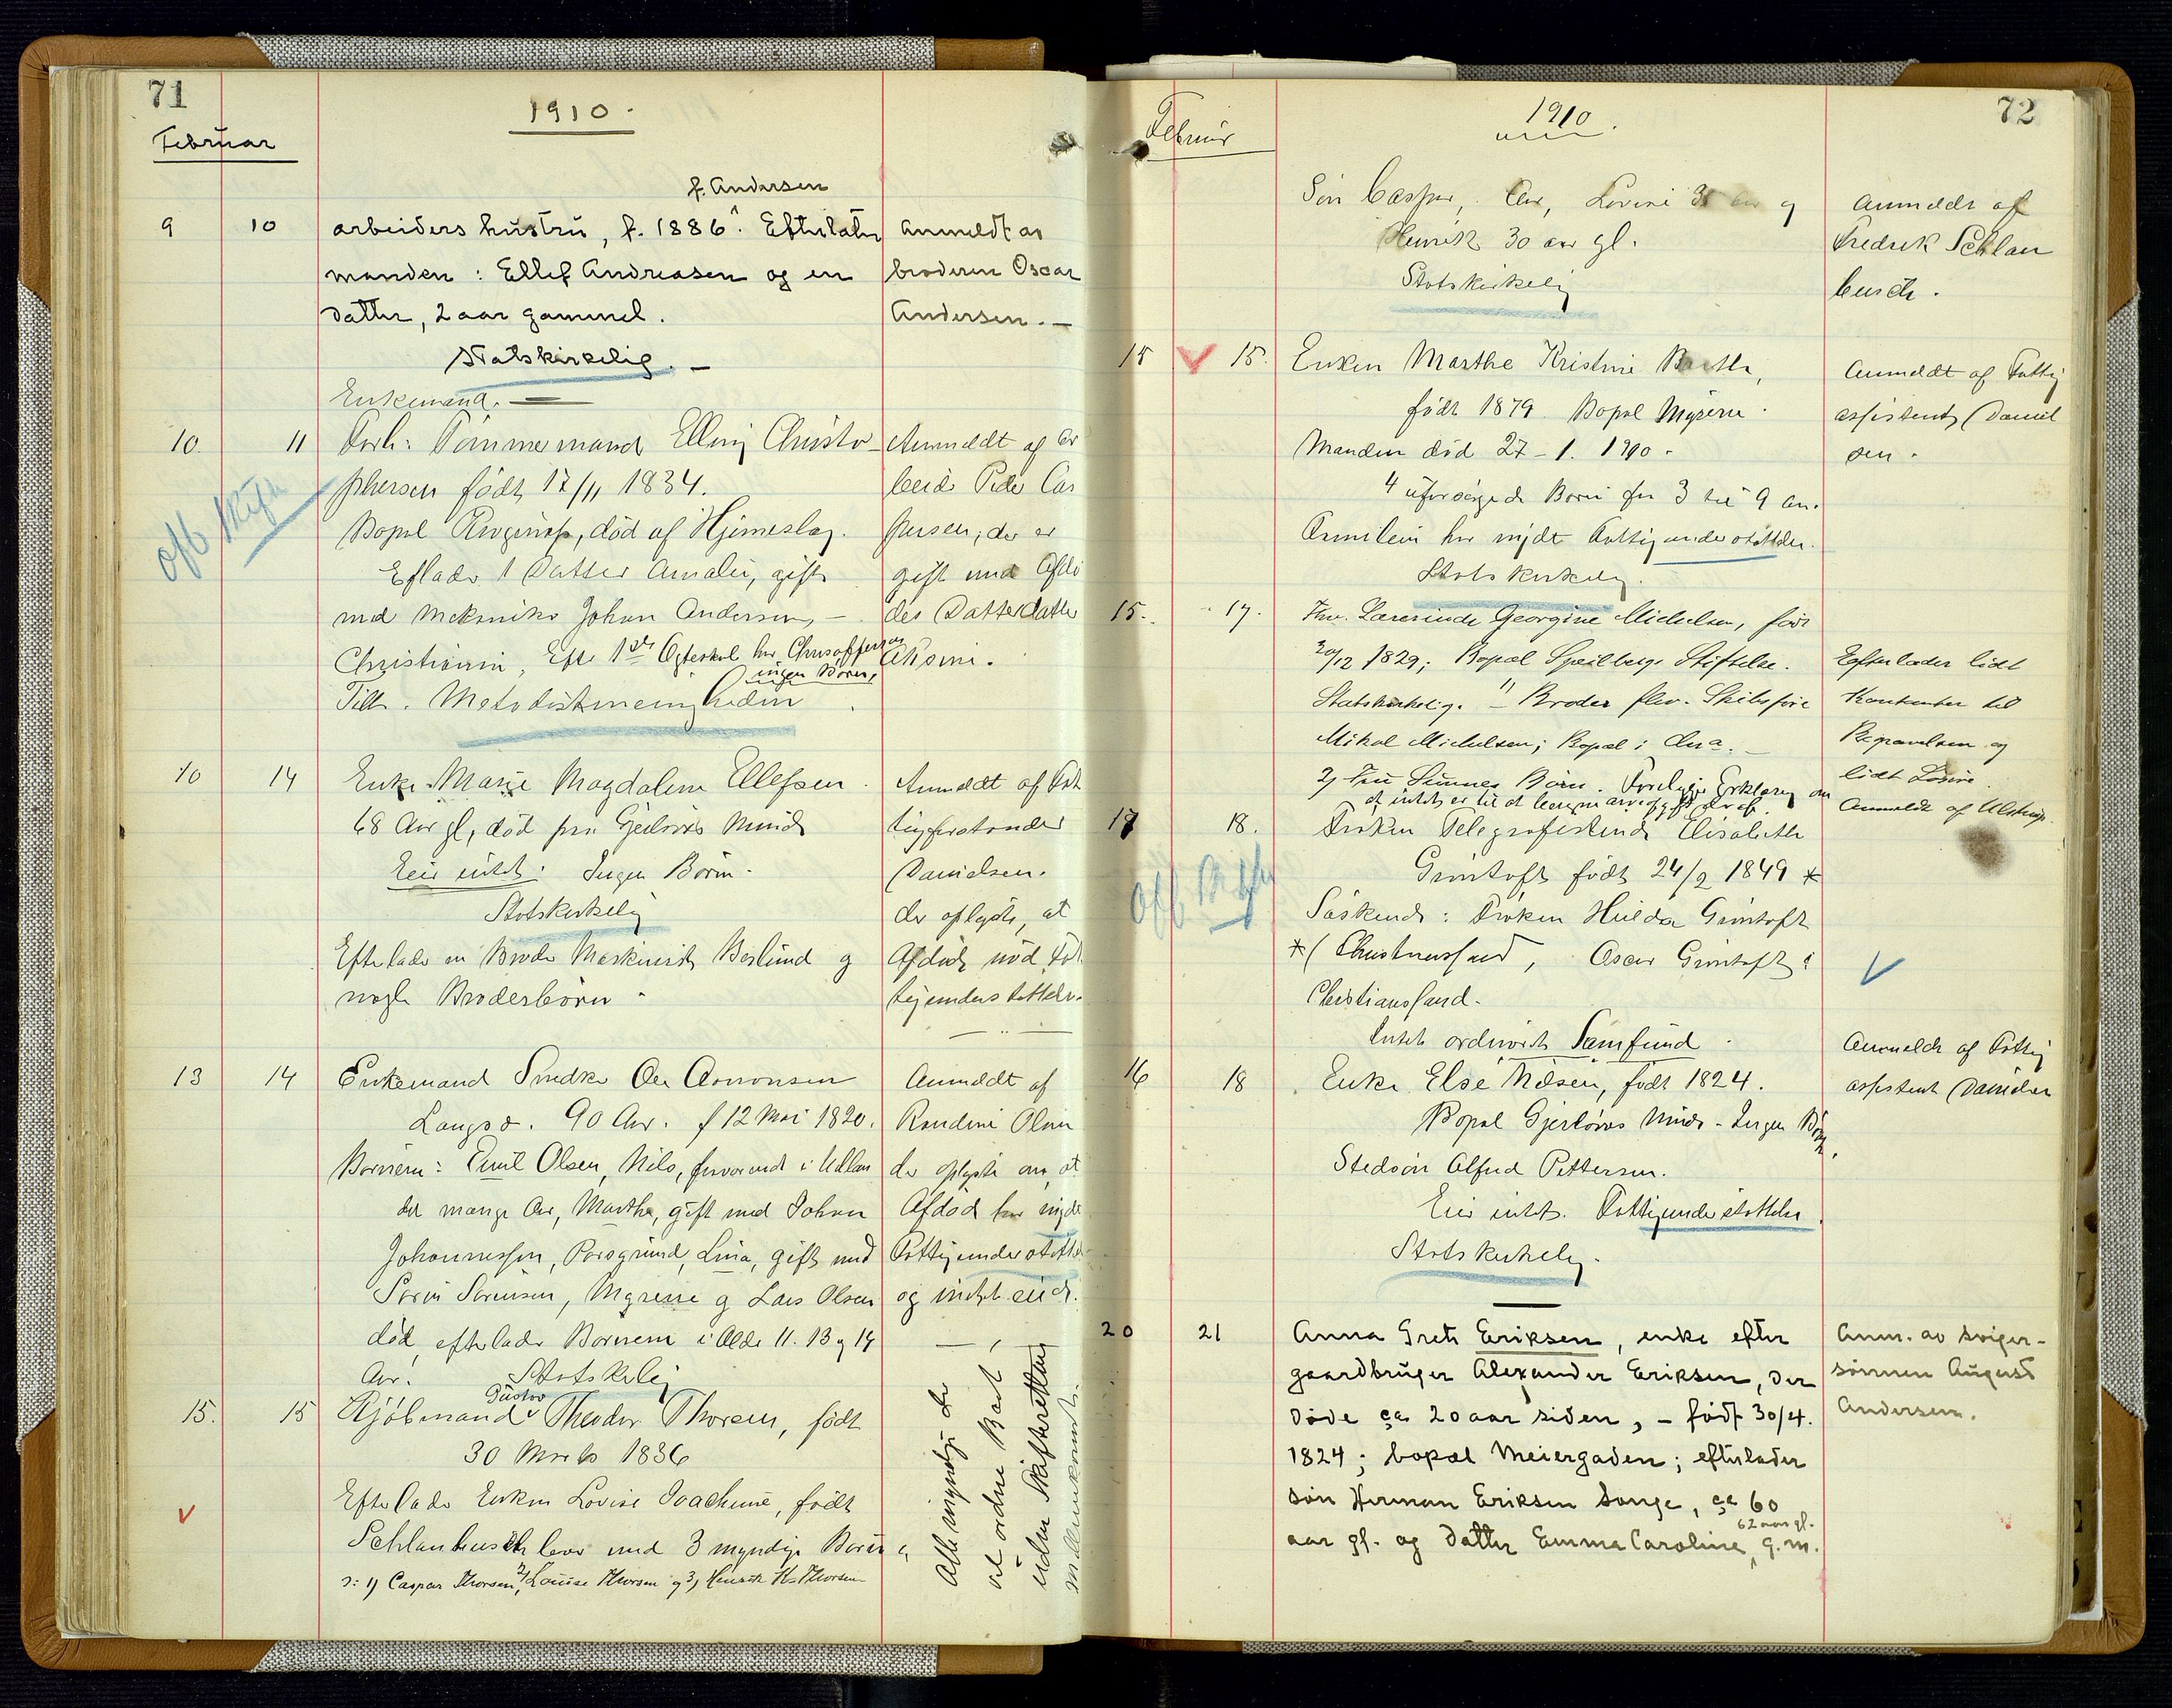 71
1910.
Februar
f. Andersen
9 10 arbeiders hustru, f. 1886. Efterlater
manden: Ellef Andreasen og en
datter, 2 aar gammel.
Statskirkelig. –
Anmeldt av
broderen Oscar
Andersen. –
Enkemand.
10. 11 Forh: Tømmermand Elling Christo-
phersen født 17/11 1834.
Bopæl, død af Hjerneslag.
Eflader 1 Datter Amalie, gift
med Mekaniker Johan Andersen, –
Christiania, Efter 1ste Ægteskab har
ingen Børn,
Tilh. Metodistmenigheden
off skifte
Anmeldt af Ar
beider Peder Cas
persen, der er
gift med Afdø
des Datterdatter
10 14 Enke Marie Magdalene Ellefsen
68 Aar gl, død paa Gjerløvs Minde
Eier intet. Ingen Børn.
Statskirkelig
Efterlader en Broder Maskinist Berlund og
nogle Broderbørn.
Anmeldt af Fat
tigforstander
Danielsen.
der oplyste, at
Afdøde nød Fat
tigunderstøttelse.
13 14 Enkemand Smedker Ole Aanonsen
Langsæ. 90 Aar. f 12 Mai 1820.
Børnene: Emil Olsen, Nils, fraværende i Udlan
det mange Aar, Marthe, gift med Johan
Johannessen, Porsgrund, Lina, gift med
Søren Sørensen, Myrene og Lars Olsen
død, efterlader Børnene i Alder 11. 13 og 14
Aar. Statskirkelig
Anmeldt af
Randine Olsen
der oplyste om, at
Afdød har nydt
Fattigunderstøttelse
og intet eiede.
15. 15 Kjøbmand Gustav Theodor Thorsen, født
30 Marts 1836
Efterlader Enken Lovise Joachime, født
Schlanbusch lever med 3 myndige Børn
ɔ: 1) Caspar Thorsen, 2) Louise Thorsen og 3) Henrik Thorsen
Alle myndige
at ordne Boet
uden Skifterettens
mellemkomst.
72
1910.
Februar
Søn Caspar, Aar, Lovise 3 Aar og
Henrik 30 aar gl.
Statskirkelig
Anmeldt af
Fredrik Schlan
busch.
15 15. Enken Marthe Kristine,
født 1879. Bopæl Myrene.
Manden død 27 – 1. 1910.
4 uforsørgede Børn fra 3 til 9 Aar.
Familien har nydt Fattigunderstøttelse.
Statskirkelig.
Anmeldt af Fattig
assistent Daniel
sen.
15. 17. Fhv. Lærerinde Georgine Michelsen, født
20/12 1829; Bopæl Stiftelse.
Statskirkelig. – 1) Broder fhv. Skibsfører
Mikal Michelsen; Bopæl i
2) Børn. Erklæring om
Efterlader lidt
Kontanter til
Begravelsen og
lidt Løsøre.
Anmeldt af Ulstrup.
17 18. Frøken Telegrafistinde Elisabeth
Grøntoft født 24/2 1849 *
Søskende: Frøken Hulda Grøntoft
*( Christianssand, Oscar Grøntoft i
Christianssand.
Intet ordnært Samfund.
off skifte
16 18 Enke Else Nilsen, født 1824.
Bopæl Gjerløvs Minde – Ingen Børn.
Stedsøn Alfred Pettersen.
Eier intet. Fattigunderstøttelse.
Statskirkelig.
Anmeldt af Fattig
assistent Danielsen
20 21 Anna Grete Eriksen, enke efter
gaardbruger Alexander Eriksen, der
døde ca 20 aar siden, – født 30/4.
1824; bopæl Meiergaden; efterlader
søn Herman Eriksen Songe, ca 60
62 aar gl.
aar gl. og datter Emma Caroline, g. m.
Anm. av sviger-
sønnen August
Andersen.